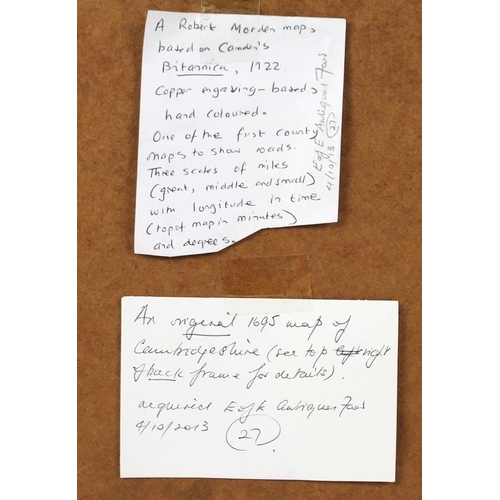 A Robert Morden map,
based on Camden's
Britannica, 1722.
Copper engraving - based,
hand coloured.
One of the first county
maps to show roads.
Three scales of miles
(great, middle and small)
with longitude in time
(top of map in minutes)
and degrees.
E of E Antiques Fair
4/10/13 (27)
An original 1695 map of
Cambridgeshire (see top left right
of back frame for details).
acquired E of E Antiques Fair
4/10/2013 (27)